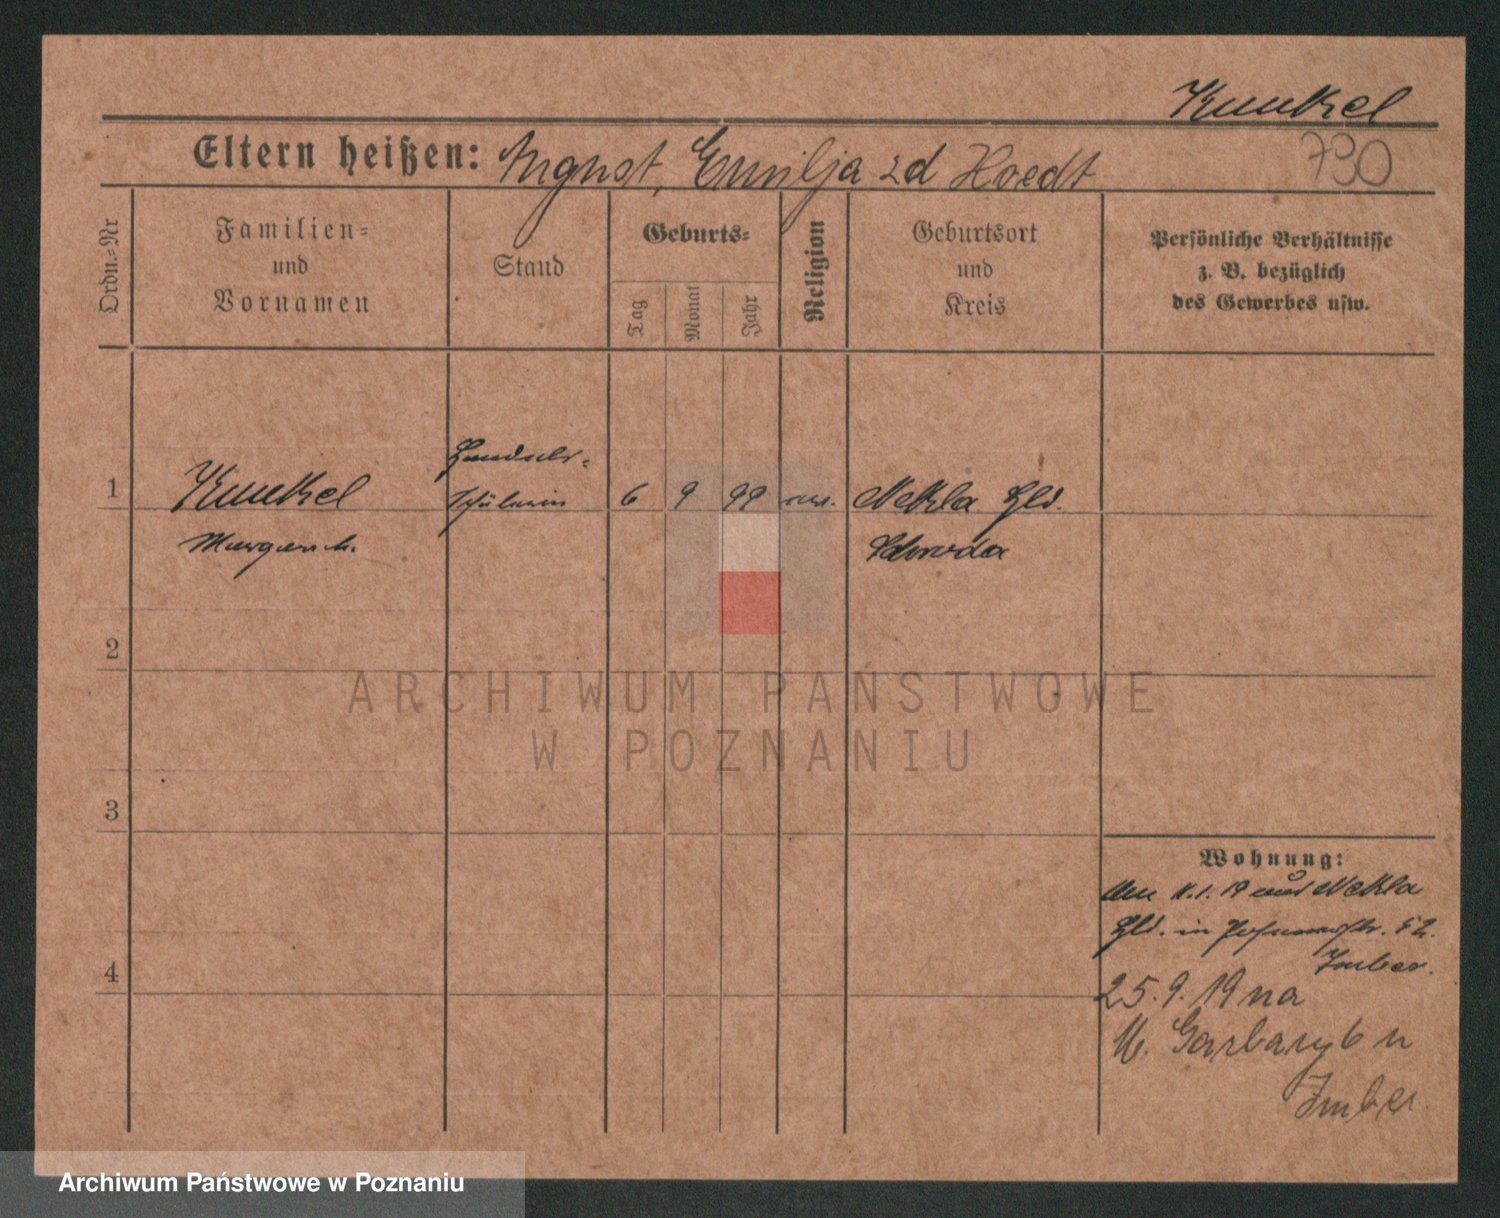 Kunkel
730
Eltern heißen: August, Emilja zd Hoedt
Ordn.-Nr
Familien-
und
Vornamen
Stand
Geburts-
Tag
Monat
Jahr
Religion
Geburtsort
und
Kreis
Persönliche Verhältnisse
z. B. bezüglich
des Gewerbes usw.
1
Kunkel
Margareth.
Handels-
schülerin
6
9
99
Nekla Hld.
Schroda
2
3
4
Wohnung:
Am 11.1.19 aus Nekla
Hld. in 52.
Imber.
25.9.19 na
Garbary 6 u
Imber
ARCHIWUM PAŃSTWOWE
W POZNANIU
Archiwum Państwowe w Poznaniu